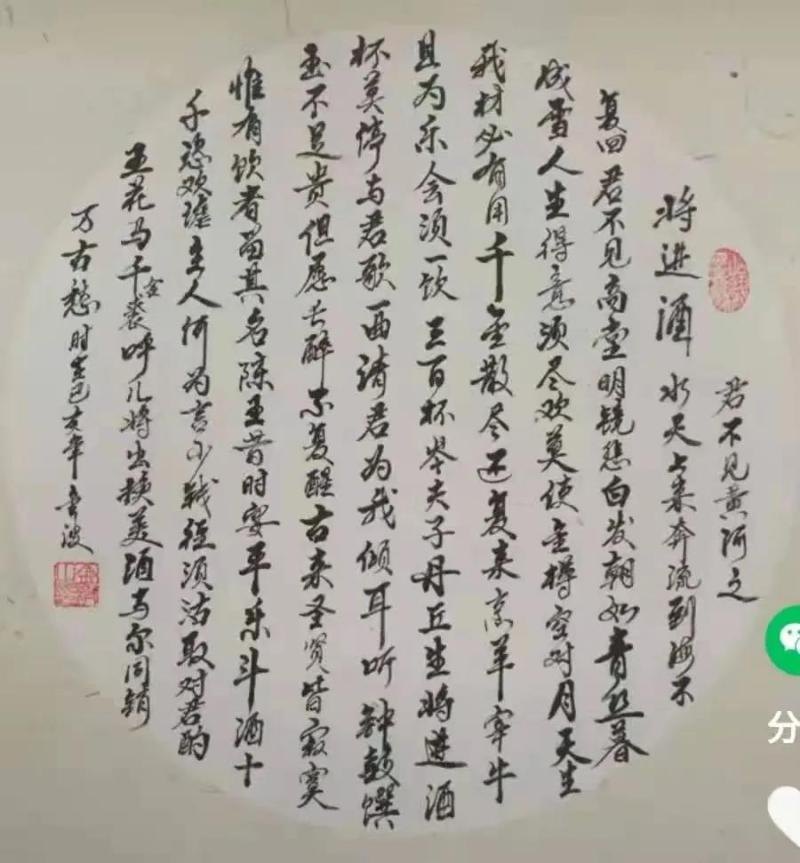 将进酒
君不见黄河之
水天上来奔流到海不
复回君不见高堂明镜悲白发朝如青丝暮
成雪人生得意须尽欢莫使金樽空对月天生
我材必有用千金散尽还复来烹羊宰牛
且为乐会须一饮三百杯岑夫子丹丘生将进酒
杯莫停与君歌一曲请君为我倾耳听钟鼓馔
玉不足贵但愿长醉不复醒古来圣贤皆寂寞
惟有饮者留其名陈王昔时宴平乐斗酒十
千恣欢谑主人何为言少钱径须沽取对君酌
五花马千金裘呼儿将出换美酒与尔同销
万古愁时 己亥年 波
分